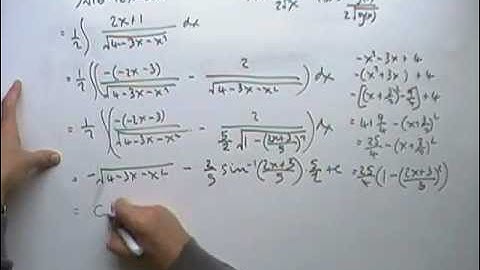 = 1/2 ∫ (2x+1)/√(4-3x-x²) dx
= 1/2 ∫ ( -(-2x-3)/√(4-3x-x²) - 2/√(4-3x-x²) ) dx
= 1/2 ∫ ( -(-2x-3)/√(4-3x-x²) - 2/( 5/2 √(1-((2x+3)/5)²) ) ) dx
= -√(4-3x-x²) - 2/5 sin⁻¹((2x+3)/5) · 5/2 + c
=
-x²-3x+4
-(x²+3x)+4
-[(x+3/2)²-9/4]+4
= 4+9/4-(x+3/2)²
= 25/4-(x+3/2)²
= 25/4(1-((2x+3)/5)²)